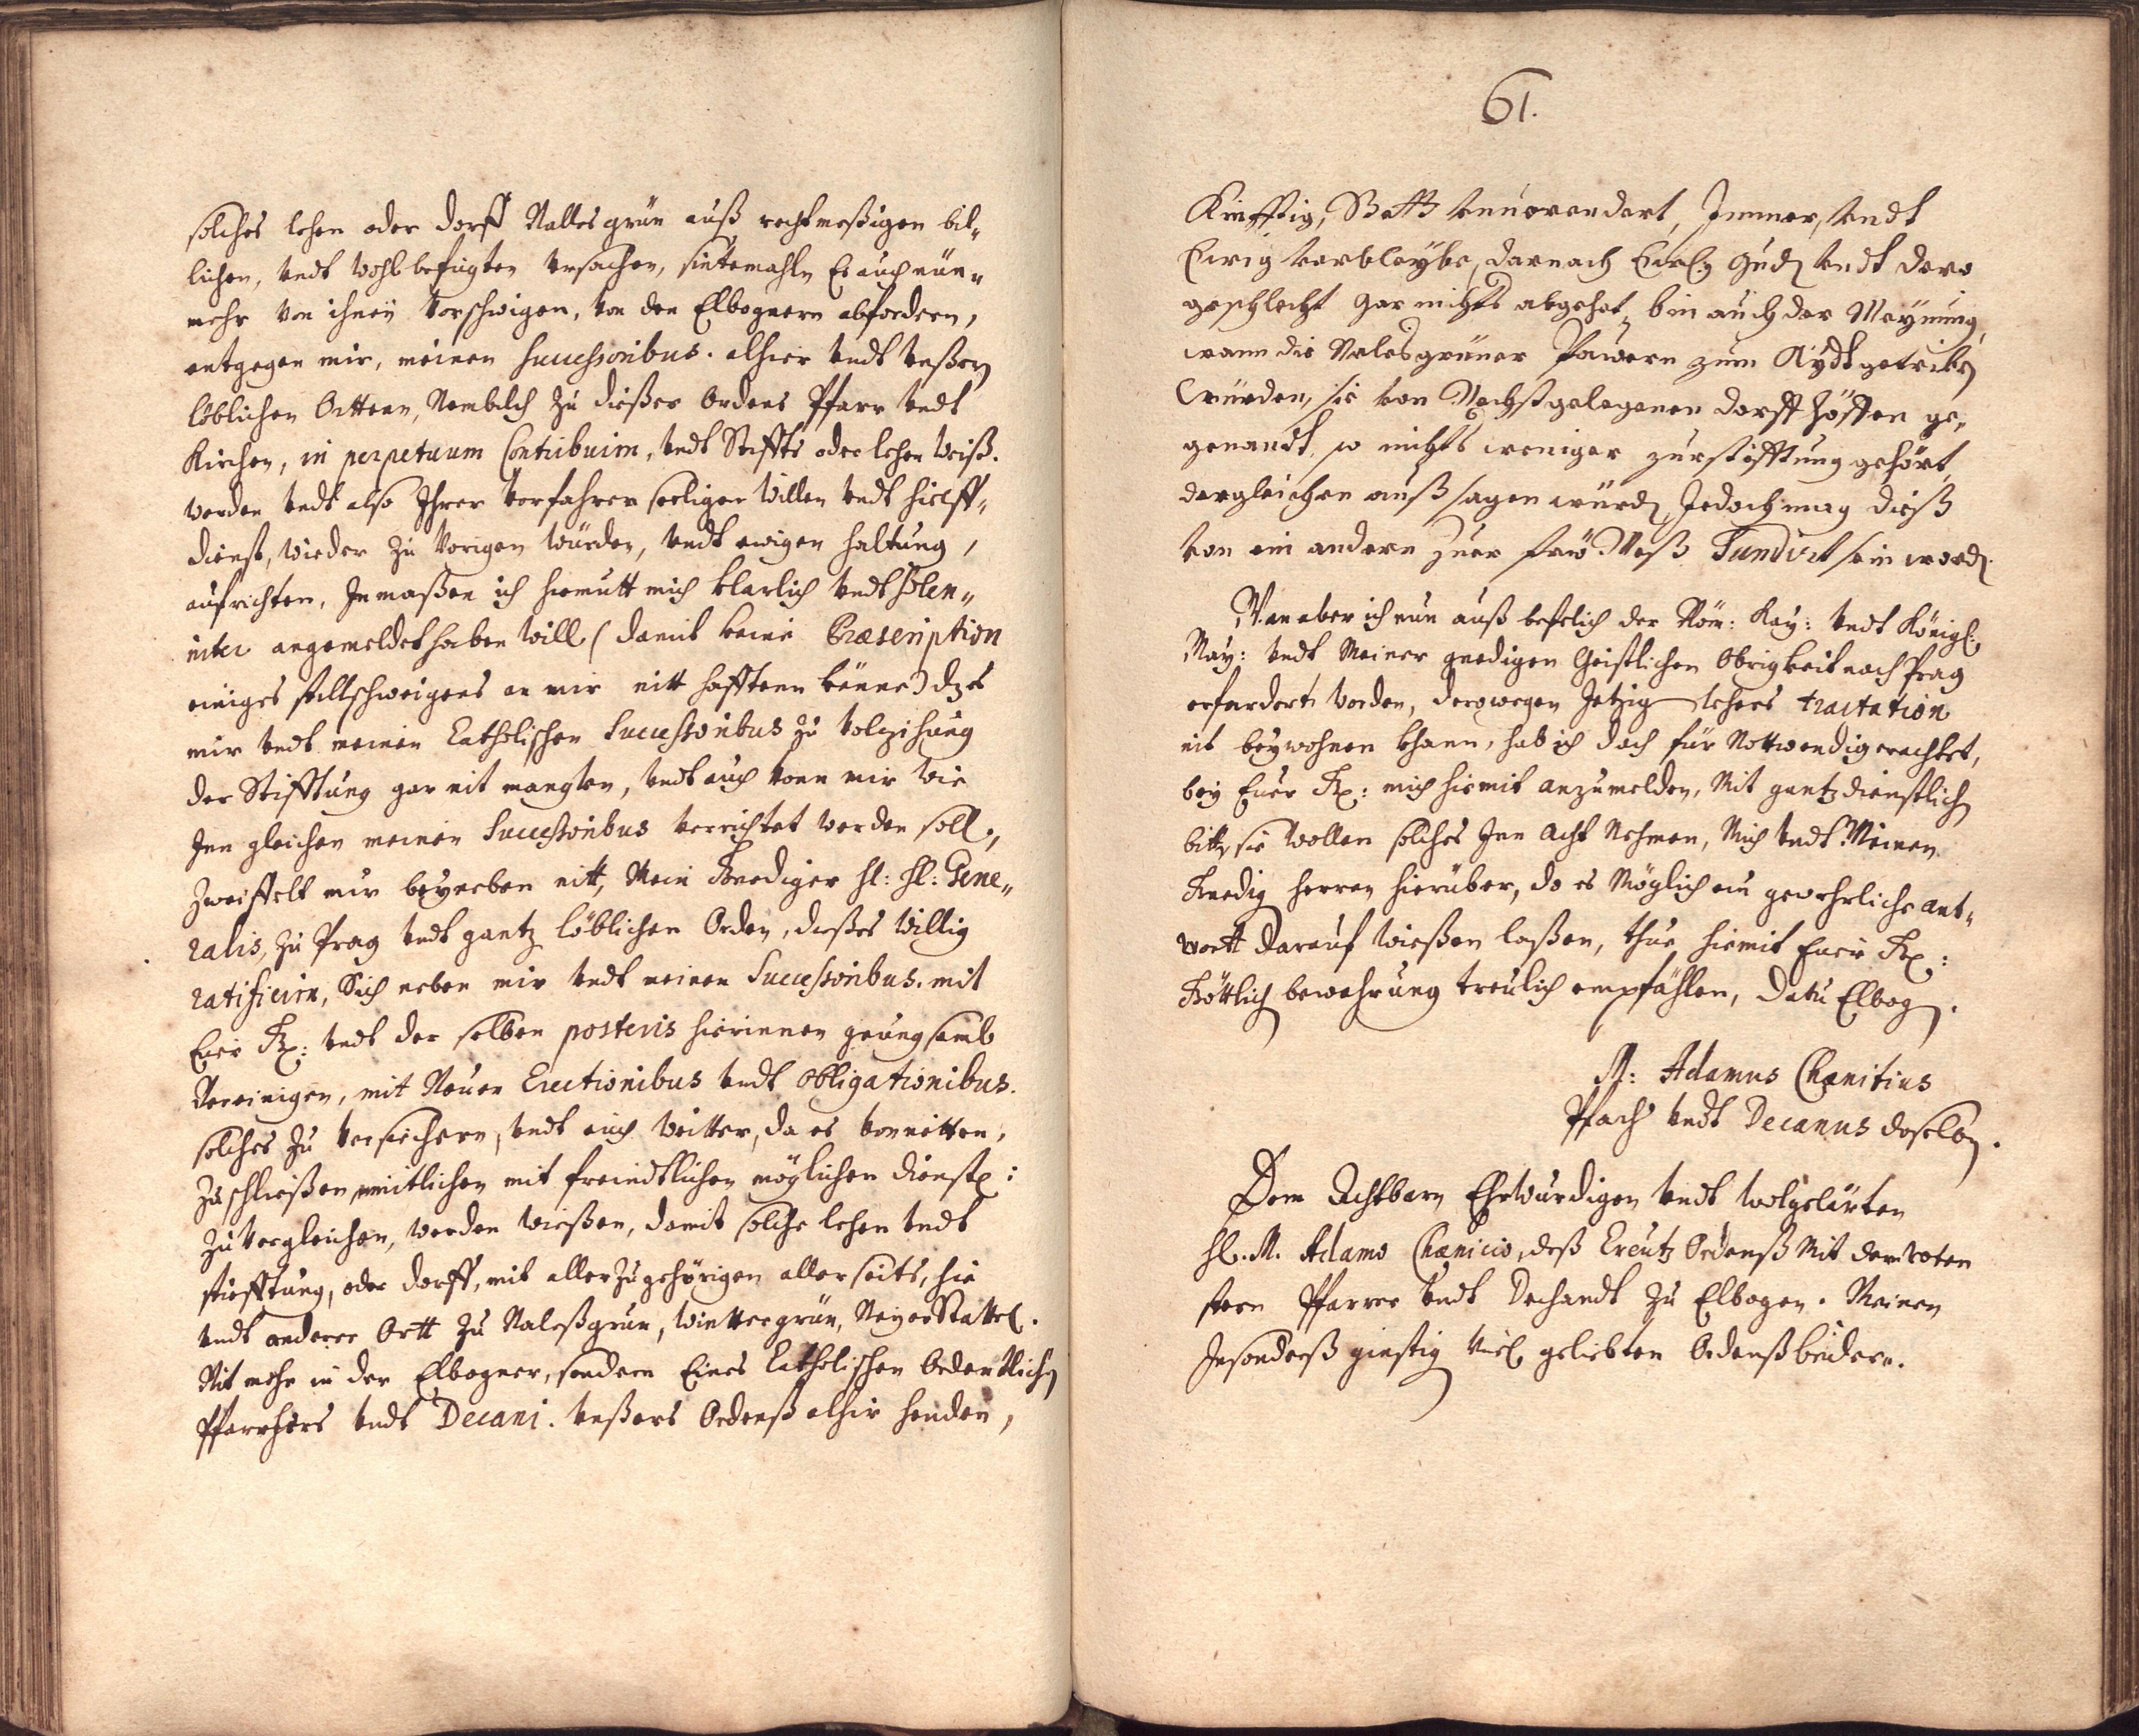 solches lehen oder dorff Nallesgrün auß rechtmeßigen bil„
lichen, vndt wohl befugten vrsachen, sintemahln Er auch nün„
mehr von ihnen vorschwigen, von den Elbognern abfordern,
entgegen mir, meinen successoribus. alhier vndt vnßern
löblichen Orttern, Nemblich zu dießer Ordens Pfarr vndt
Kirchen, in perpetuum Contribuirn, vndt Stiffts oder lehen weiß.
werden vndt also Ihrer vorfahren seeligen willen vndt hielff„
dienst, wieder zu vorigen würden, vndt ewigen haltung,
aufrichten, Inmaßen ich hiemitt mich klarlich vndt Solen„
niter angemeldet haben will (damit keine Præscription
einiges stillschweigens an mir nitt hafften könne) dz es
mir vndt meinen Catholischen Successoribus zu volzihung
der Stifftung gar nit manglen, vndt auch vonn mir wie
Inn gleichen meinen Successoribus verrichtet werden soll.,
Zweiffelt mir beyneben nitt, Mein Gnediger H: H: Gene„
ralis, zu Prag vndt gantz löblichen Orden, dießes willig
ratificirn, Sich neben mir vndt meinen Successoribus. mit
Euer G: vndt der selben posteris hierinnen genugsamb
Vereinigen, mit Neuen Erectionibus vndt obligationibus.
solches zu versichern, vndt auch weitter, da es vonnötten,
zu schließen, mitlichen mit freindtlichen möglichen dienst:
zu vergleichen, werden wießen, damit solche lehen vndt
stiefftung, oder dorff, mit aller zugehörigen allerseits, hie
vndt anderer Ortt zu Naleßgrun, Wintergrün, NeyerStattel.
Nit mehr in der Elbogner, sondern Eines Catholischen Ordentlichen
Pfarrhers vndt Decani. vnßers Ordenß alhir henden,
61.
Kinfftig, Stetts vnuorendert, Immer, vndt
Ewig verbleybe, darnach Eurl: Gnd vndt dero
geschlecht gar nichts abgehet, bin auch der Meynung,
wann die Nalesgrüner Pawern zum Aydt getriben
würden, sie von Nechstgelegenen dorff Höffen ge„
genandt, so nichts weniger zur stifftung gehört,
dergleichen außsagen würd, Jedoch mag dieß
von ein andern zuer früe Meß Fundirt sein word.
Wan aber ich nun auß befelich der Röm: Kay: vndt Königl:
May: vndt Meiner gnedigen Geistlichen Obrigkeit nach Prag
erfordert worden, derowegen Jetzig lehens tractation
nit beywohnen khann, hab ich doch für Nottwendig erachtet,
bey Euer G: mich hiemit anzumelden, Mit gantz dienstlich
bitt, sie wollen solches Inn acht Nehmen, Mich vndt Meinen
Gnedig Herren hierüber, do es Möglich ein gewehrliche ant„
wortt darauf wießen laßen, thue hiemit Euer G:
Göttlich bewahrung treulich empfählen, Datu Elbog.
M: Adamus Chænitius
Pfarh vndt Decanus doselbn.
Dem Achtbarn Ehrwürdigen vndt wolgelärten
H. M. Adamo Chænicio, deß Creutz Ordenß Mit dem roten
stern Pfarrer vndt Dechandt zu Elbogen. Meinen
Insonderß ginstig viel geliebten Ordenßbruder.